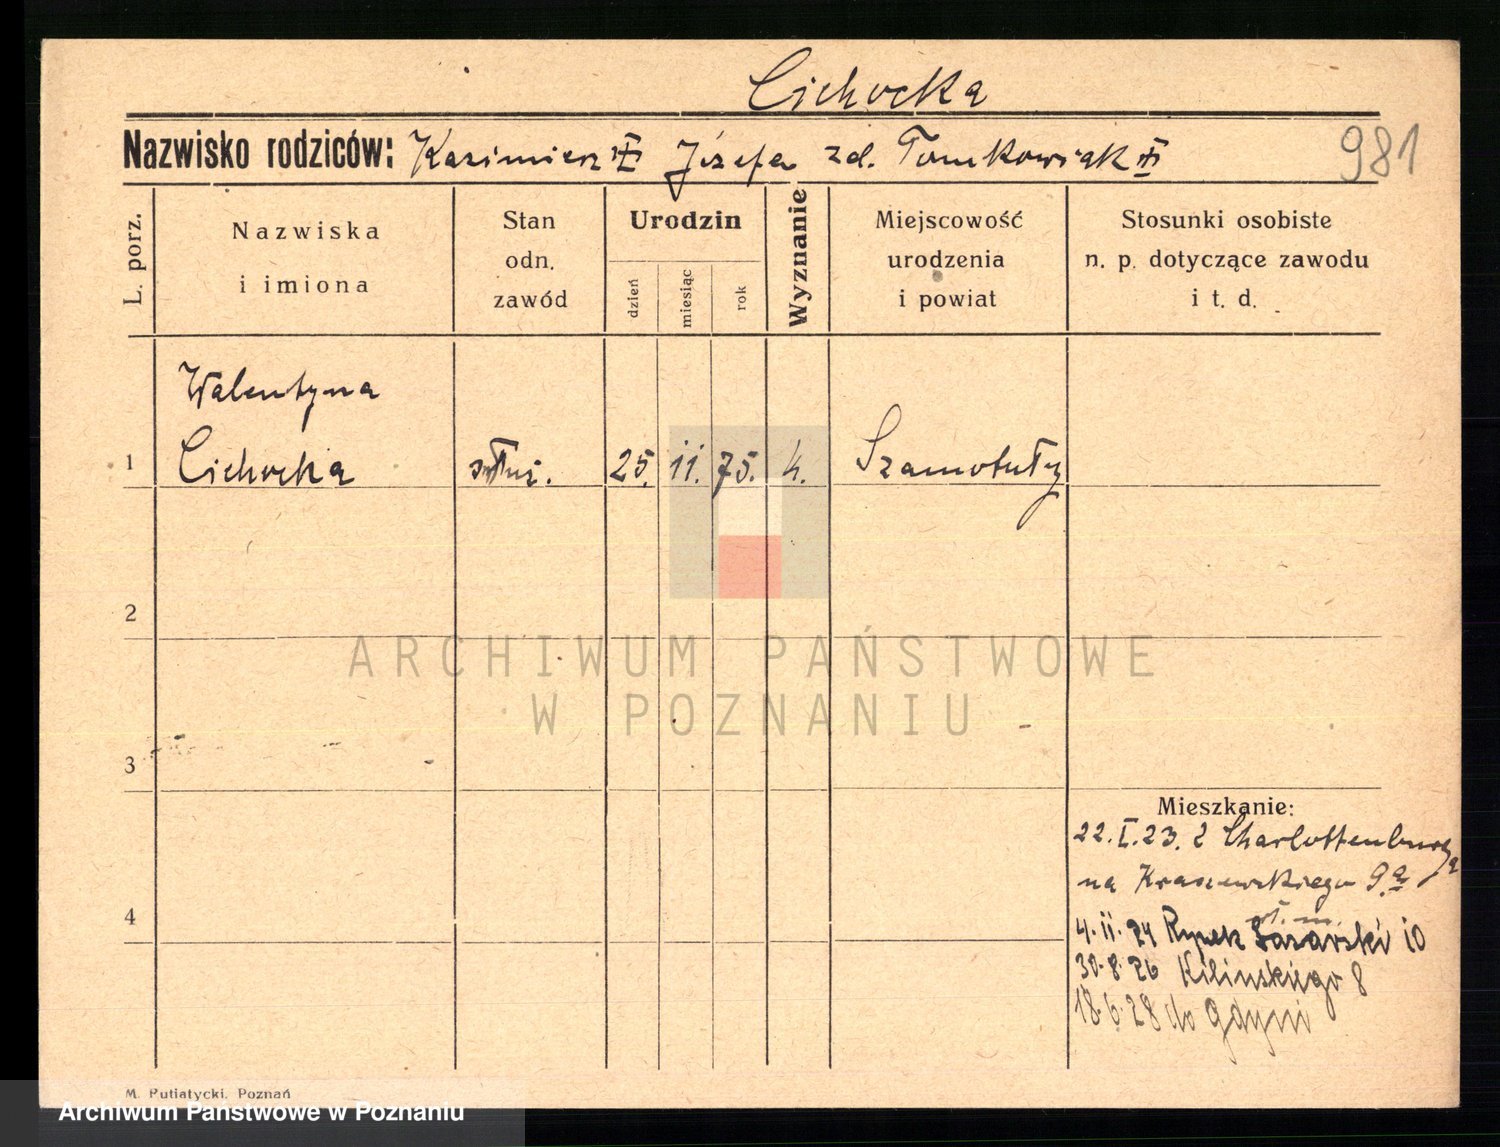 Cichocka
Nazwisko rodziców: Kazimierz Józefa zd. Tomkowiak
981
L. porz.
Nazwiska
i imiona
Stan
odn.
zawód
Urodzin
dzień
miesiąc
rok
Wyznanie
Miejscowość
urodzenia
i powiat
Stosunki osobiste
n. p. dotyczące zawodu
i t. d.
Walentyna
1 Cichocka służ. 25. 11. 75. k. Szamotuły
2
ARCHIWUM PAŃSTWOWE
W POZNANIU
3
Mieszkanie:
22.I.23. z Charlottenburga
na Kraszewskiego 9a
4
4.11.24 Rynek Łazarski 10
30.8.26 Kilinskiego 8
18.6.28 do Gdyni
M. Putiatycki, Poznań
Archiwum Państwowe w Poznaniu